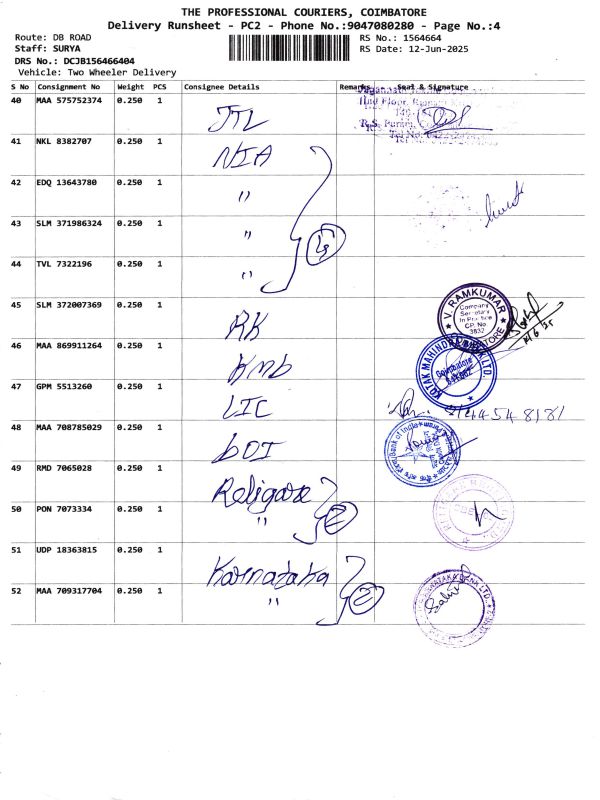 THE PROFESSIONAL COURIERS, COIMBATORE
Delivery Runsheet - PC2 - Phone No.:9047080280 - Page No.:4
Route: DB ROAD
RS No.: 1564664
Staff: SURYA
RS Date: 12-Jun-2025
DRS No.: DCJB156466404
Vehicle: Two Wheeler Delivery
S No Consignment No Weight PCS Consignee Details Remarks Seal & Signature
40 MAA 575752374 0.250 1 JTL
41 NKL 8382707 0.250 1 NIA
42 EDQ 13643780 0.250 1 "
43 SLM 371986324 0.250 1 "
44 TVL 7322196 0.250 1 "
45 SLM 372007369 0.250 1 RK
V. RAMKUMAR
Company Secretary In Practice CP. No. 3832
46 MAA 869911264 0.250 1 KMB
KOTAK MAHINDRA BANK LTD.
Coimbatore
47 GPM 5513260 0.250 1 LIC
48 MAA 708785029 0.250 1 BOI
Bank of India
49 RMD 7065028 0.250 1 Religare
50 PON 7073334 0.250 1 " 2
51 UDP 18363815 0.250 1 Karnataka
52 MAA 709317704 0.250 1 " 2
KARNATAKA BANK LTD.